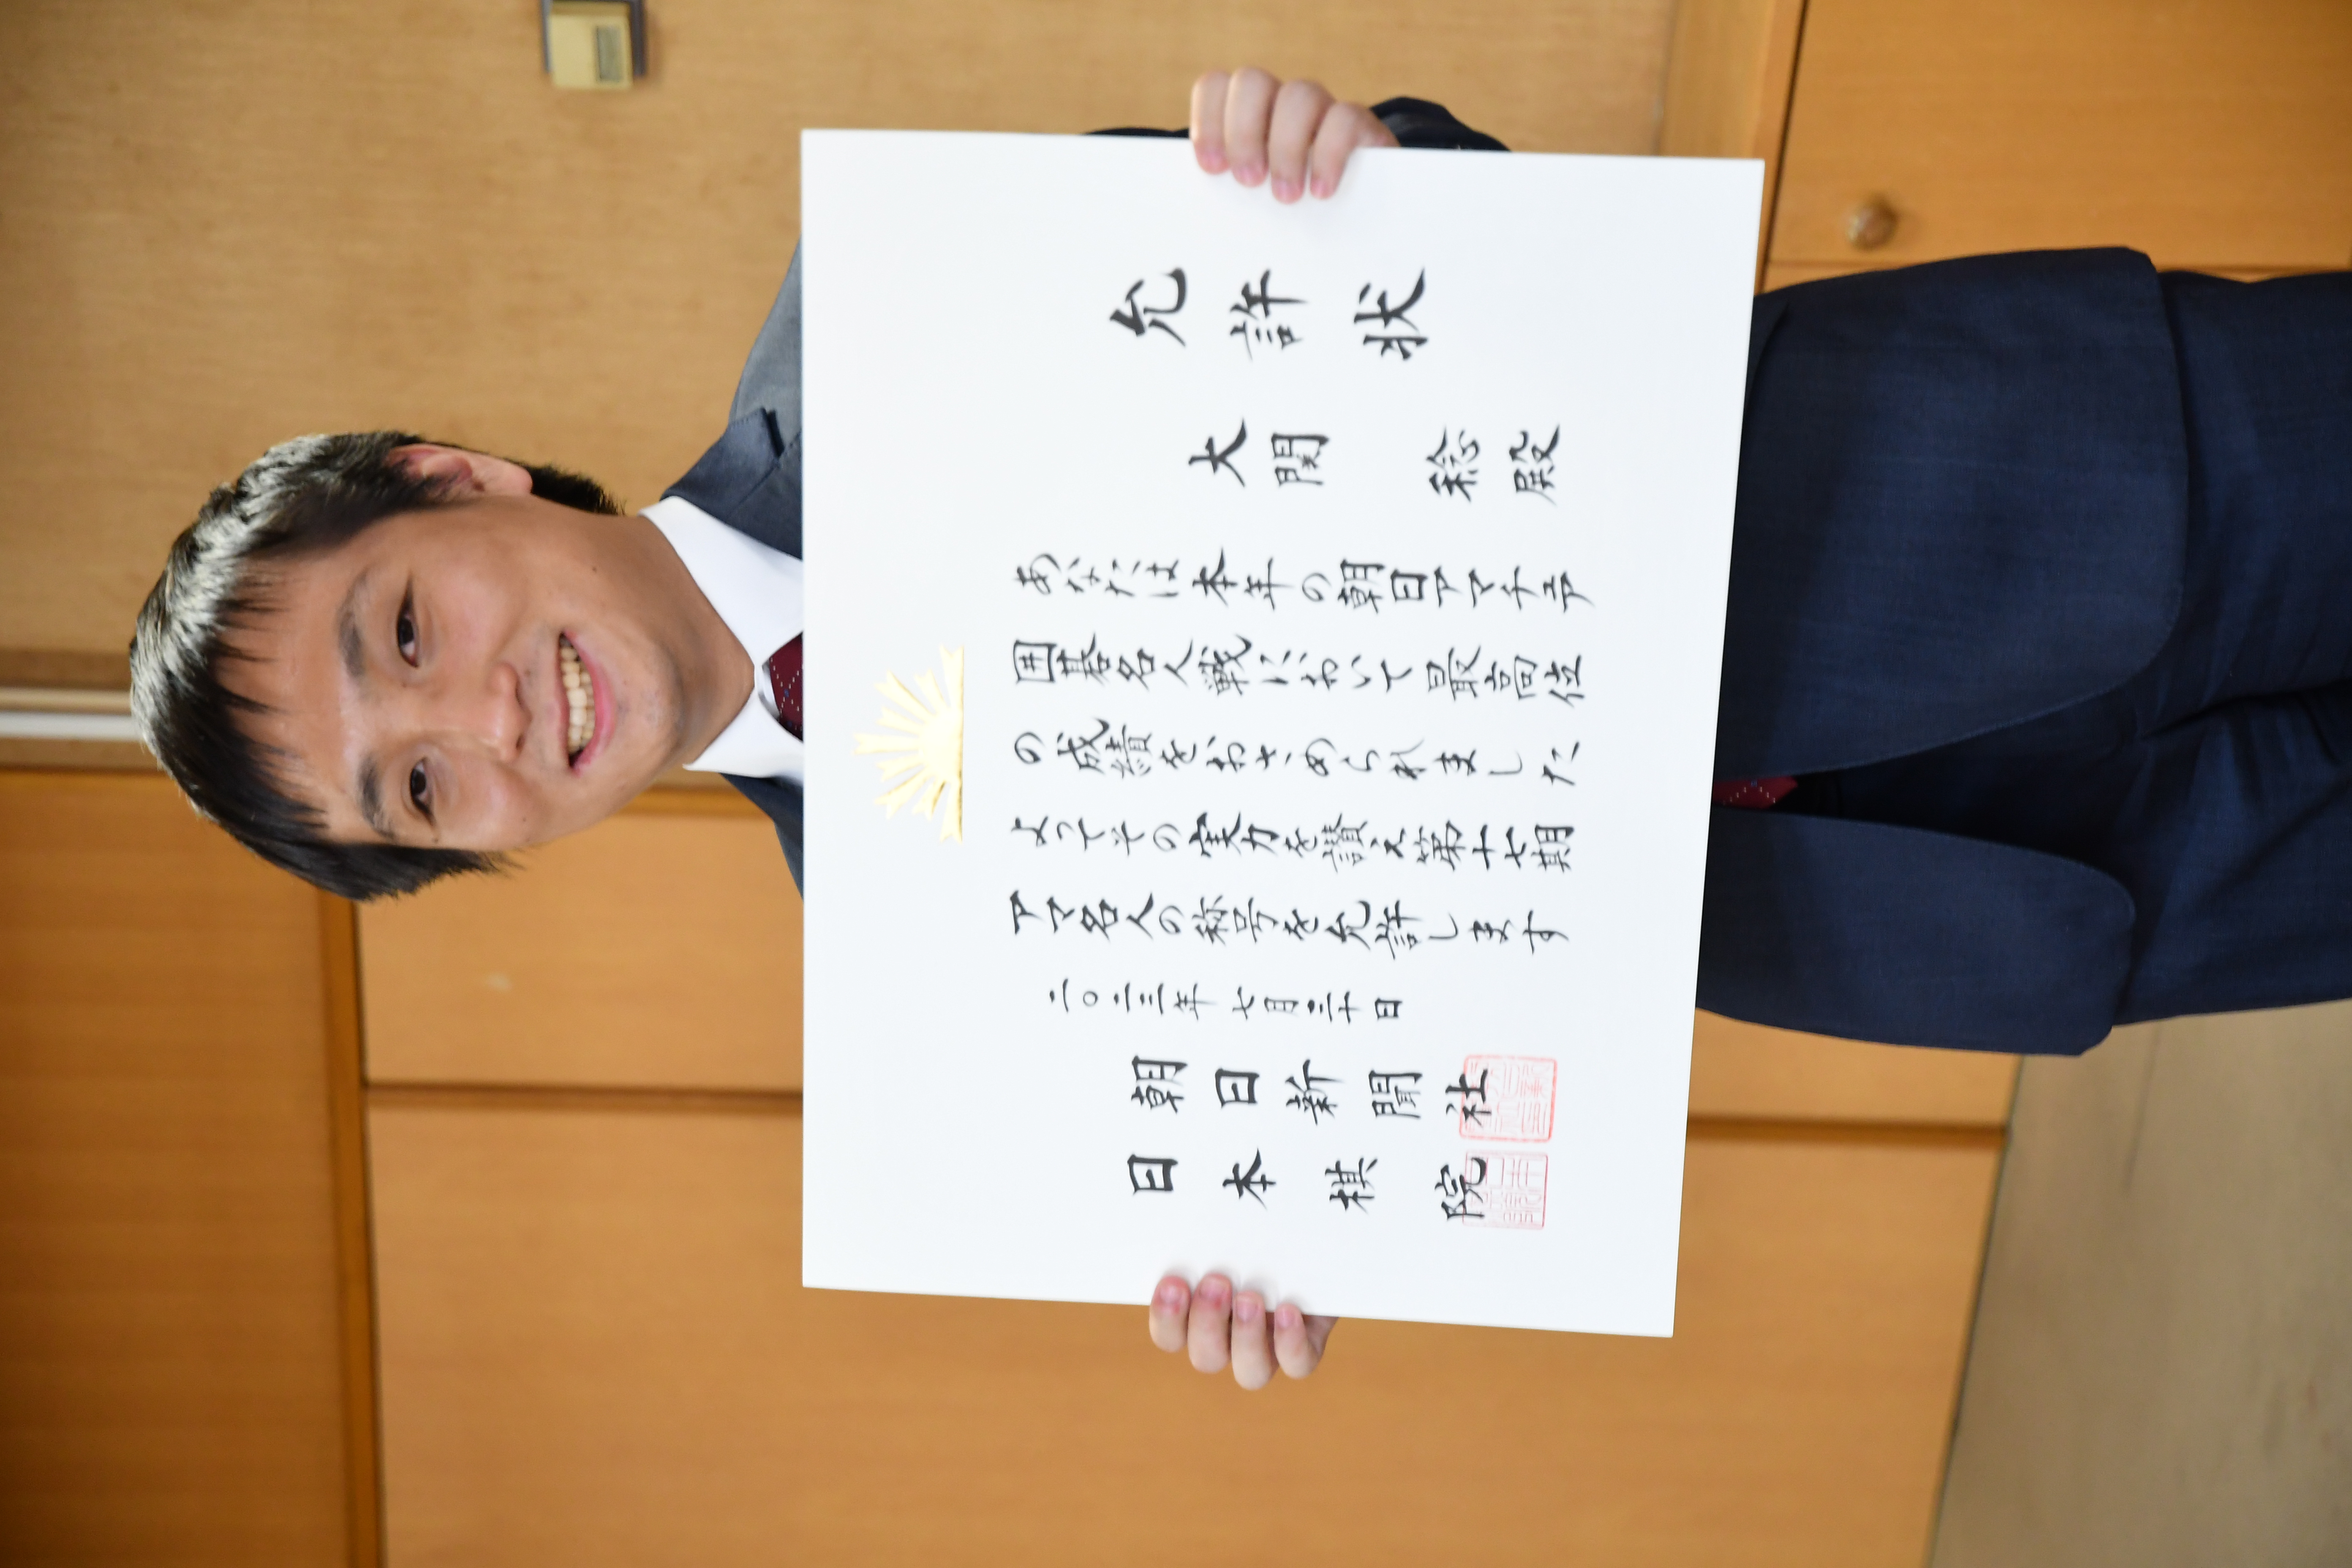 允許状
大関 稔殿
あなたは本年の朝日アマチュア
囲碁名人戦において最高位
の成績をおさめられました
よってその実力を讃え第十七期
アマ名人の称号を允許します
二〇二三年七月三十日
朝日新聞社
日本棋院